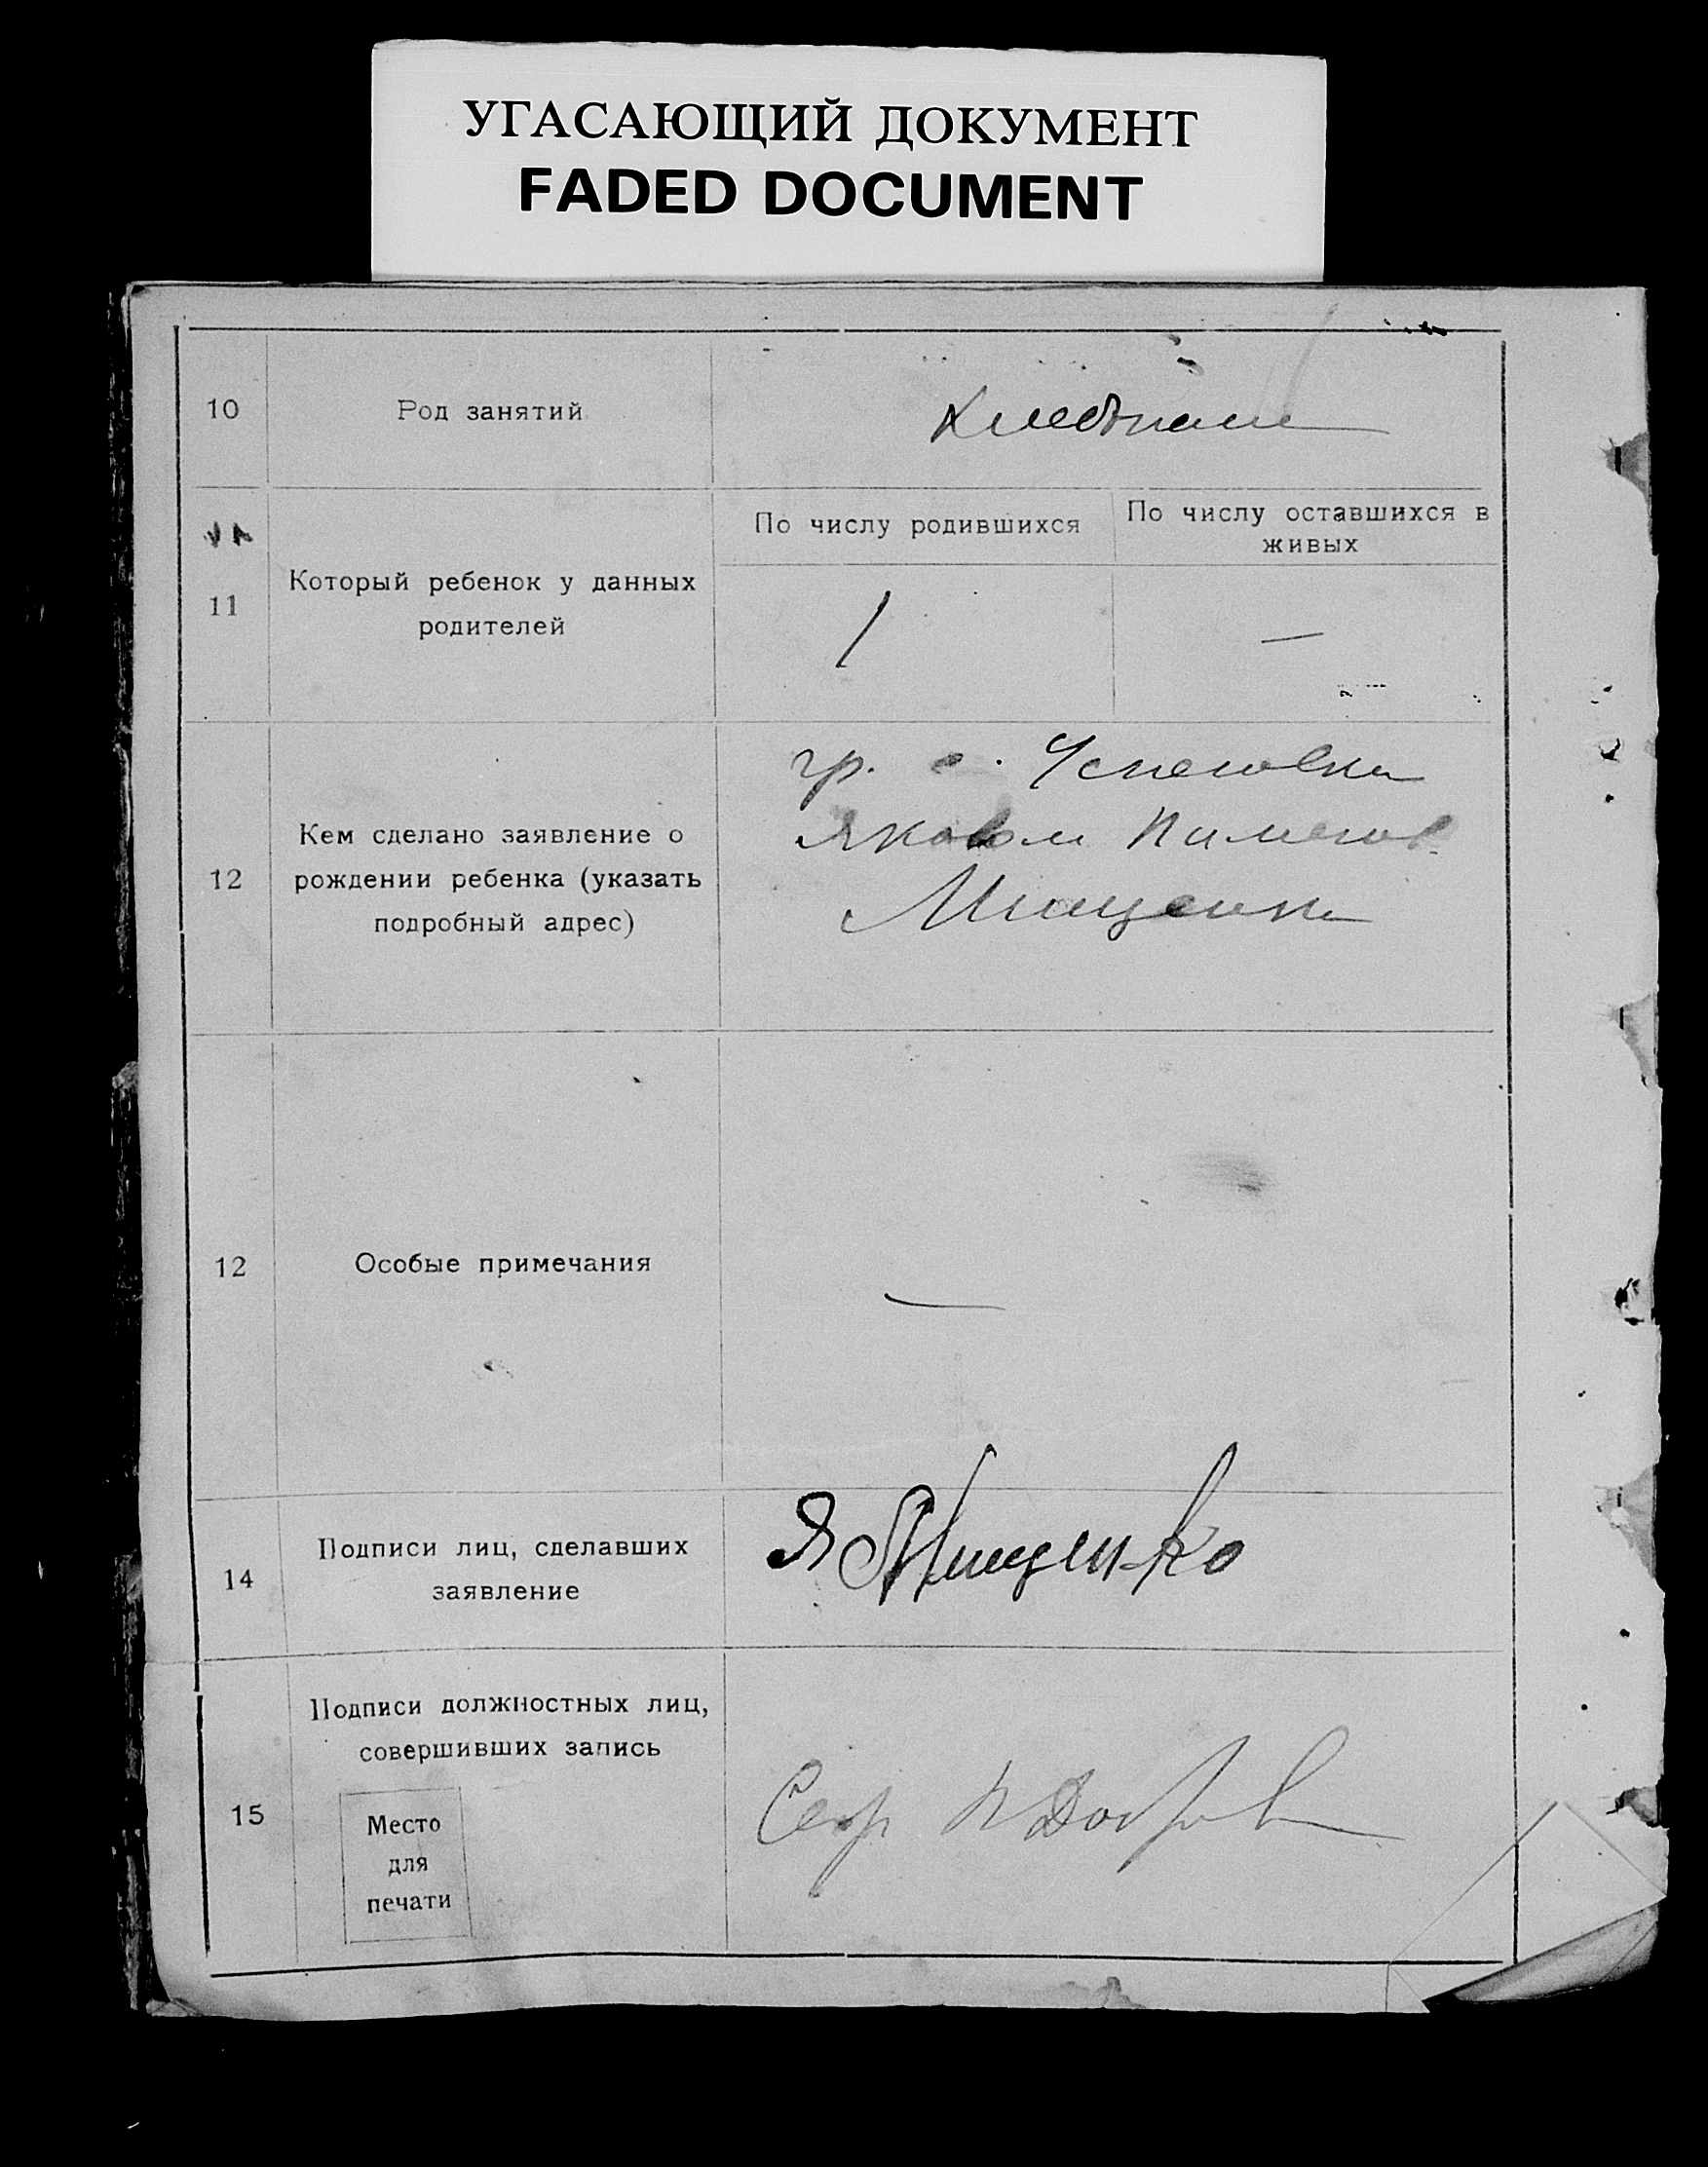 УГАСАЮЩИЙ ДОКУМЕНТ
FADED DOCUMENT
10
Род занятий
Хлебопаш
11
Который ребенок у данных
родителей
По числу родившихся
По числу оставшихся в
живых
1
—
12
Кем сделано заявление о
рождении ребенка (указать
подробный адрес)
гр. с. Успеновки
Яковом Пименов.
Мищенко
12
Особые примечания
—
14
Подписи лиц, сделавших
заявление
Я Мищенко
15
Подписи должностных лиц,
совершивших запись
Место
для
печати
Секр